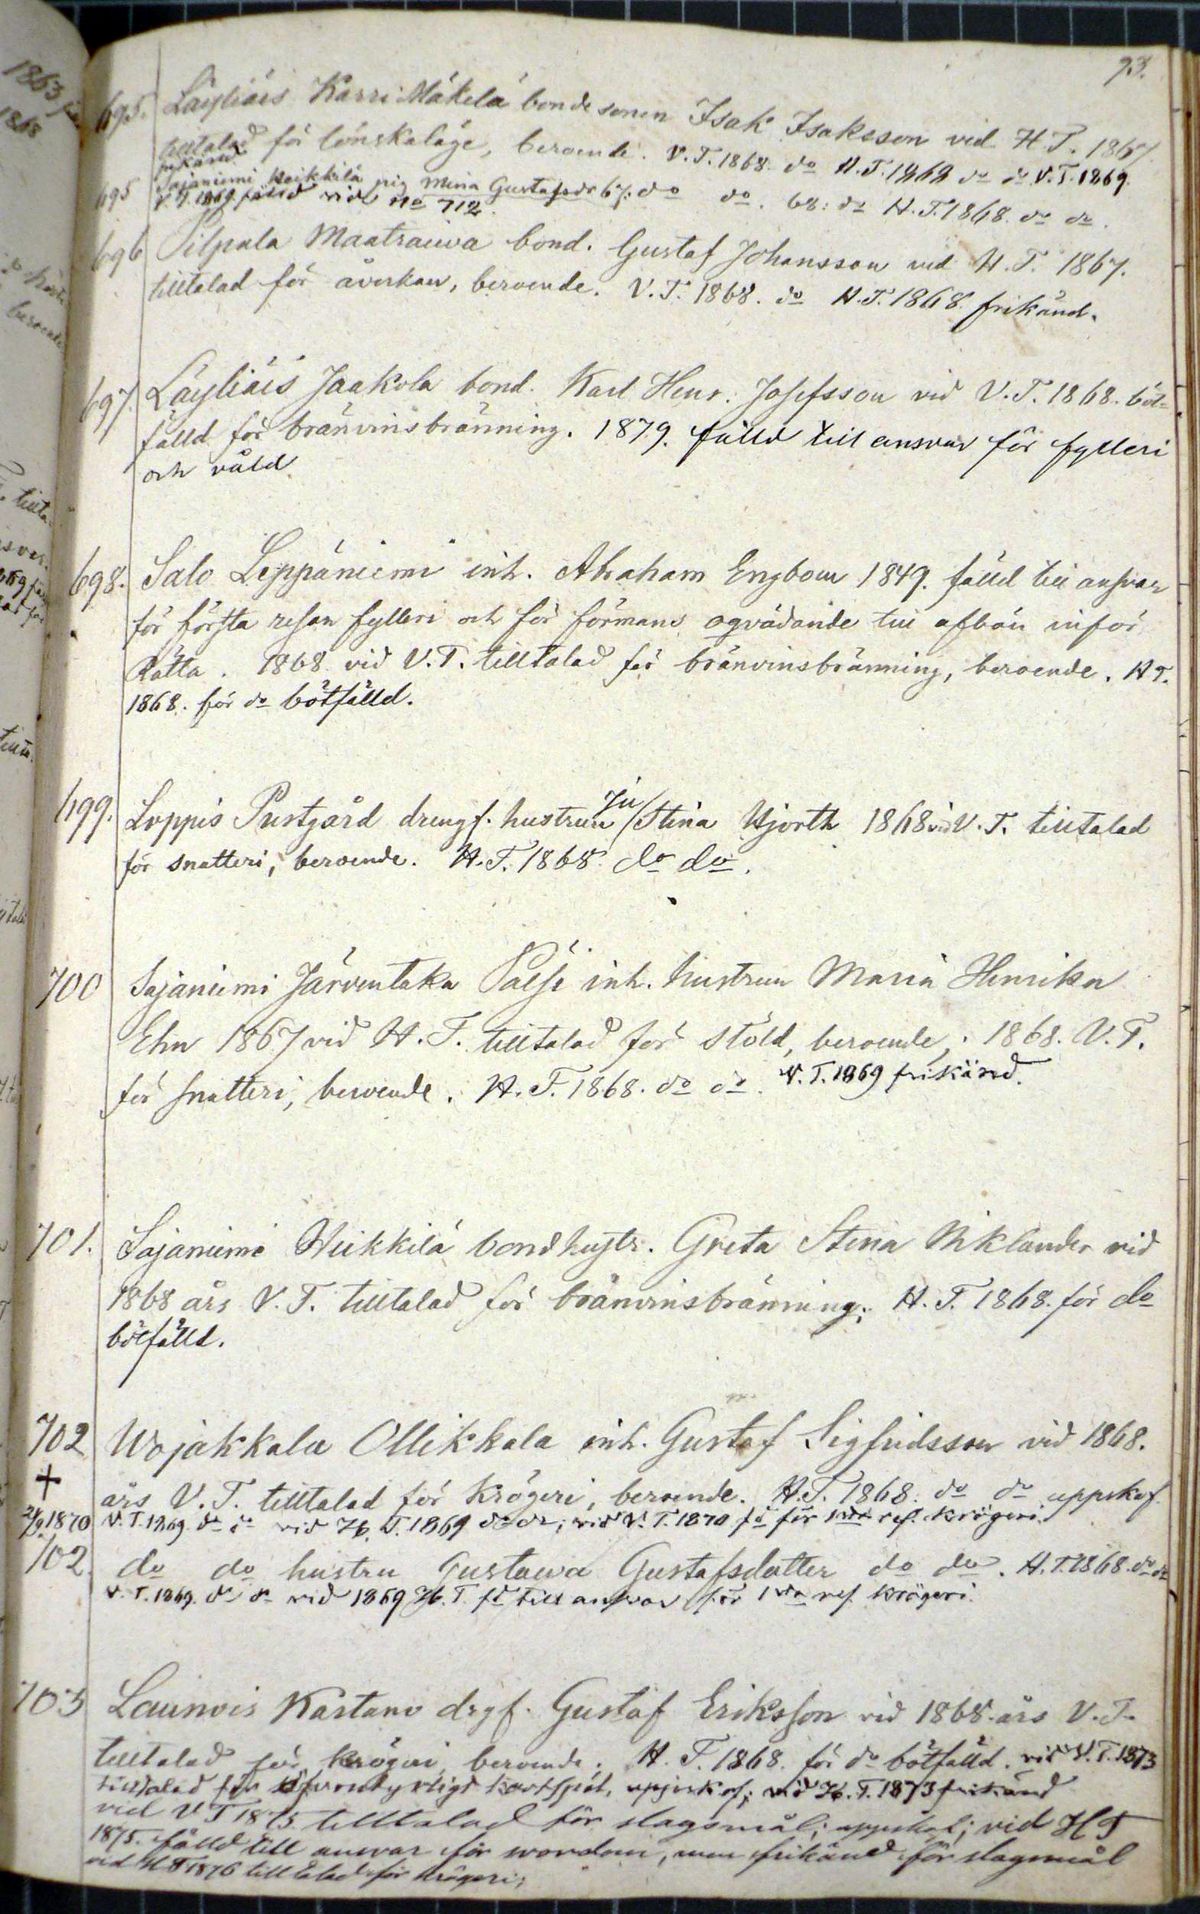 93.
1863
1868
695. Läyliäis Karri Mäkelä bondesonen Isak Isaksson vid H.T. 1867
tilltalad för lönskaläge, beroende. V.T. 1868. do H.T. 1868 do do V.T. 1869.
frikänd
695 Sajaniemi Heikkilä pig Mina Gustafsdr 67. do do. 68: do H.T. 1868. do do.
V.T. 1869 fälld vid No 712.
696 Pilpala Maatraiwa bond. Gustaf Johansson vid H.T. 1867.
tilltalad för åverkan, beroende. V.T. 1868. do H.T. 1868. frikänd.
697. Läyliäis Jaakola bond. Karl Henr. Josefsson vid V.T. 1868. böt-
fälld för bränvinsbränning. 1879. fälld till ansvar för fylleri
och våld
698. Salo Leppäniemi inh. Abraham Engbom 1849. fälld till ansvar
för första resan fylleri och för förmans ogvädande till afbön inför
Rätta. 1868 vid V.T. tilltalad för bränvinsbränning, beroende. H T.
1868. för do bötfälld.
699. Loppis Prestgård drengf. hustrun Stina Hjorth 1868 vid V.T. tilltalad
för snatteri, beroende. H.T. 1868. do do.
700 Sajaniemi Järventaka inh. hustrun Maria Henrika
Ehn 1867 vid H.T. tilltalad för stöld, beroende; 1868. V.T.
för snatteri, beroende. H.T. 1868. do do. V.T. 1869 frikänd.
701. Sajaniemi Heikkilä bondhustr. Greta Stina Niklander vid
1868 års V.T. tilltalad för bränvinsbränning; H.T. 1868. för do
bötfälld.
702 Wojakkala Ollikkala inh. Gustaf Sigfridsson vid 1868.
+ års V.T. tilltalad för krögeri, beroende. H.T. 1868. do do uppskof.
1870 V.T. 1869. do do vid H.T. 1869 do do; vid V.T. 1870 fd för 1sta res. krögeri.
702. do do hustru Gustawa Gustafsdotter do do. H.T. 1868. do do
V.T. 1869. do do vid 1869 H.T. fd till answar för 1sta res. krögeri.
703 Launois Kartano drgf. Gustaf Eriksson vid 1868. års V.T.
tilltalad för krögeri, beroende; H.T. 1868. för do bötfälld. vid V.T. 1873
tilltalad för kortspel, uppskof; vid H.T. 1873 frikänd
vid V T 1875 tilltalad för slagsmål; uppskof; vid H T
1875. fälld till answar för swordom, men frikänd för slagsmål
vid H T 1876 tilltalad för krögeri;